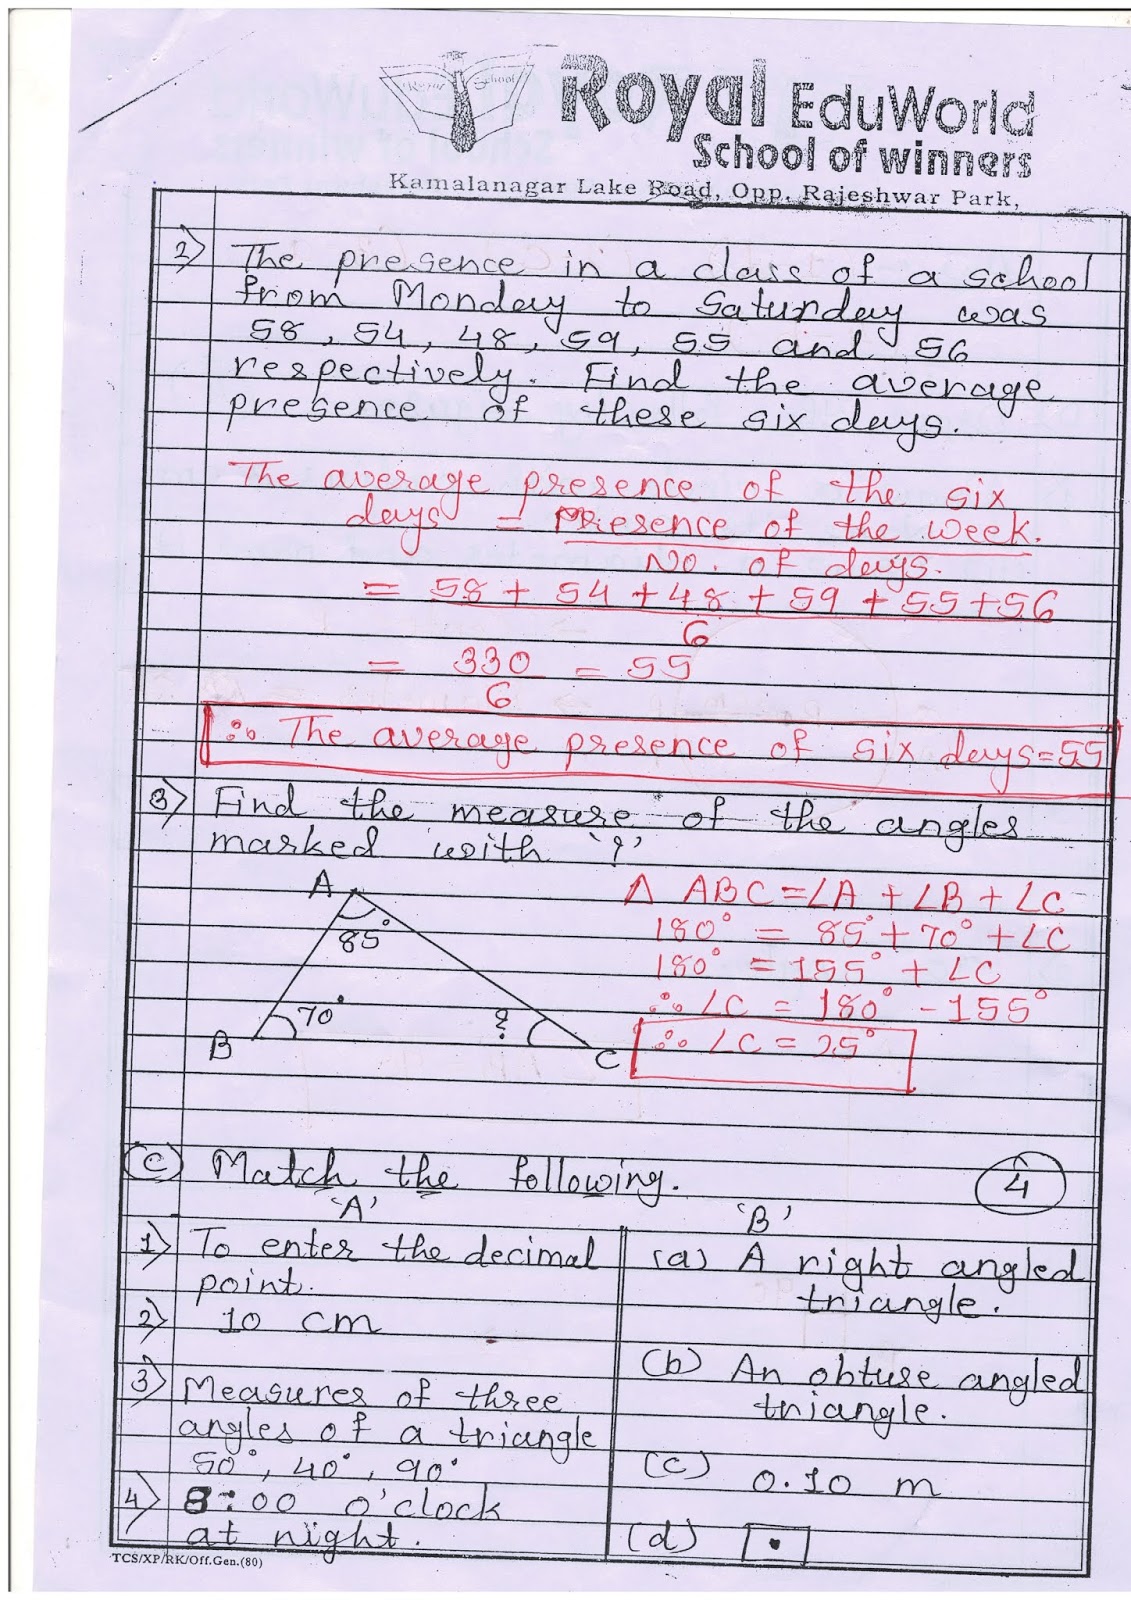 Royal School
Royal EduWorld
School of winners
Kamalanagar Lake Road, Opp. Rajeshwar Park,
2) The presence in a class of a school
from Monday to Saturday was
58, 54, 48, 59, 55 and 56
respectively. Find the average
presence of these six days.
The average presence of the six
days = Presence of the week.
No. of days.
= 58 + 54 + 48 + 59 + 55 + 56
6
= 330 = 55
6
∴ The average presence of six days = 55
3) Find the measure of the angles
marked with '?'
A
85°
70°
?
B
C
Δ ABC = ∠A + ∠B + ∠C
180° = 85° + 70° + ∠C
180° = 155° + ∠C
∴ ∠C = 180° - 155°
∴ ∠C = 25°
(C) Match the following.
4
'A'
'B'
1) To enter the decimal
point.
2) 10 cm
3) Measures of three
angles of a triangle
50°, 40°, 90°
4) 8:00 o'clock
at night.
(a) A right angled
triangle.
(b) An obtuse angled
triangle.
(c) 0.10 m
(d) •
TCS/XP/RK/Off.Gen.(80)